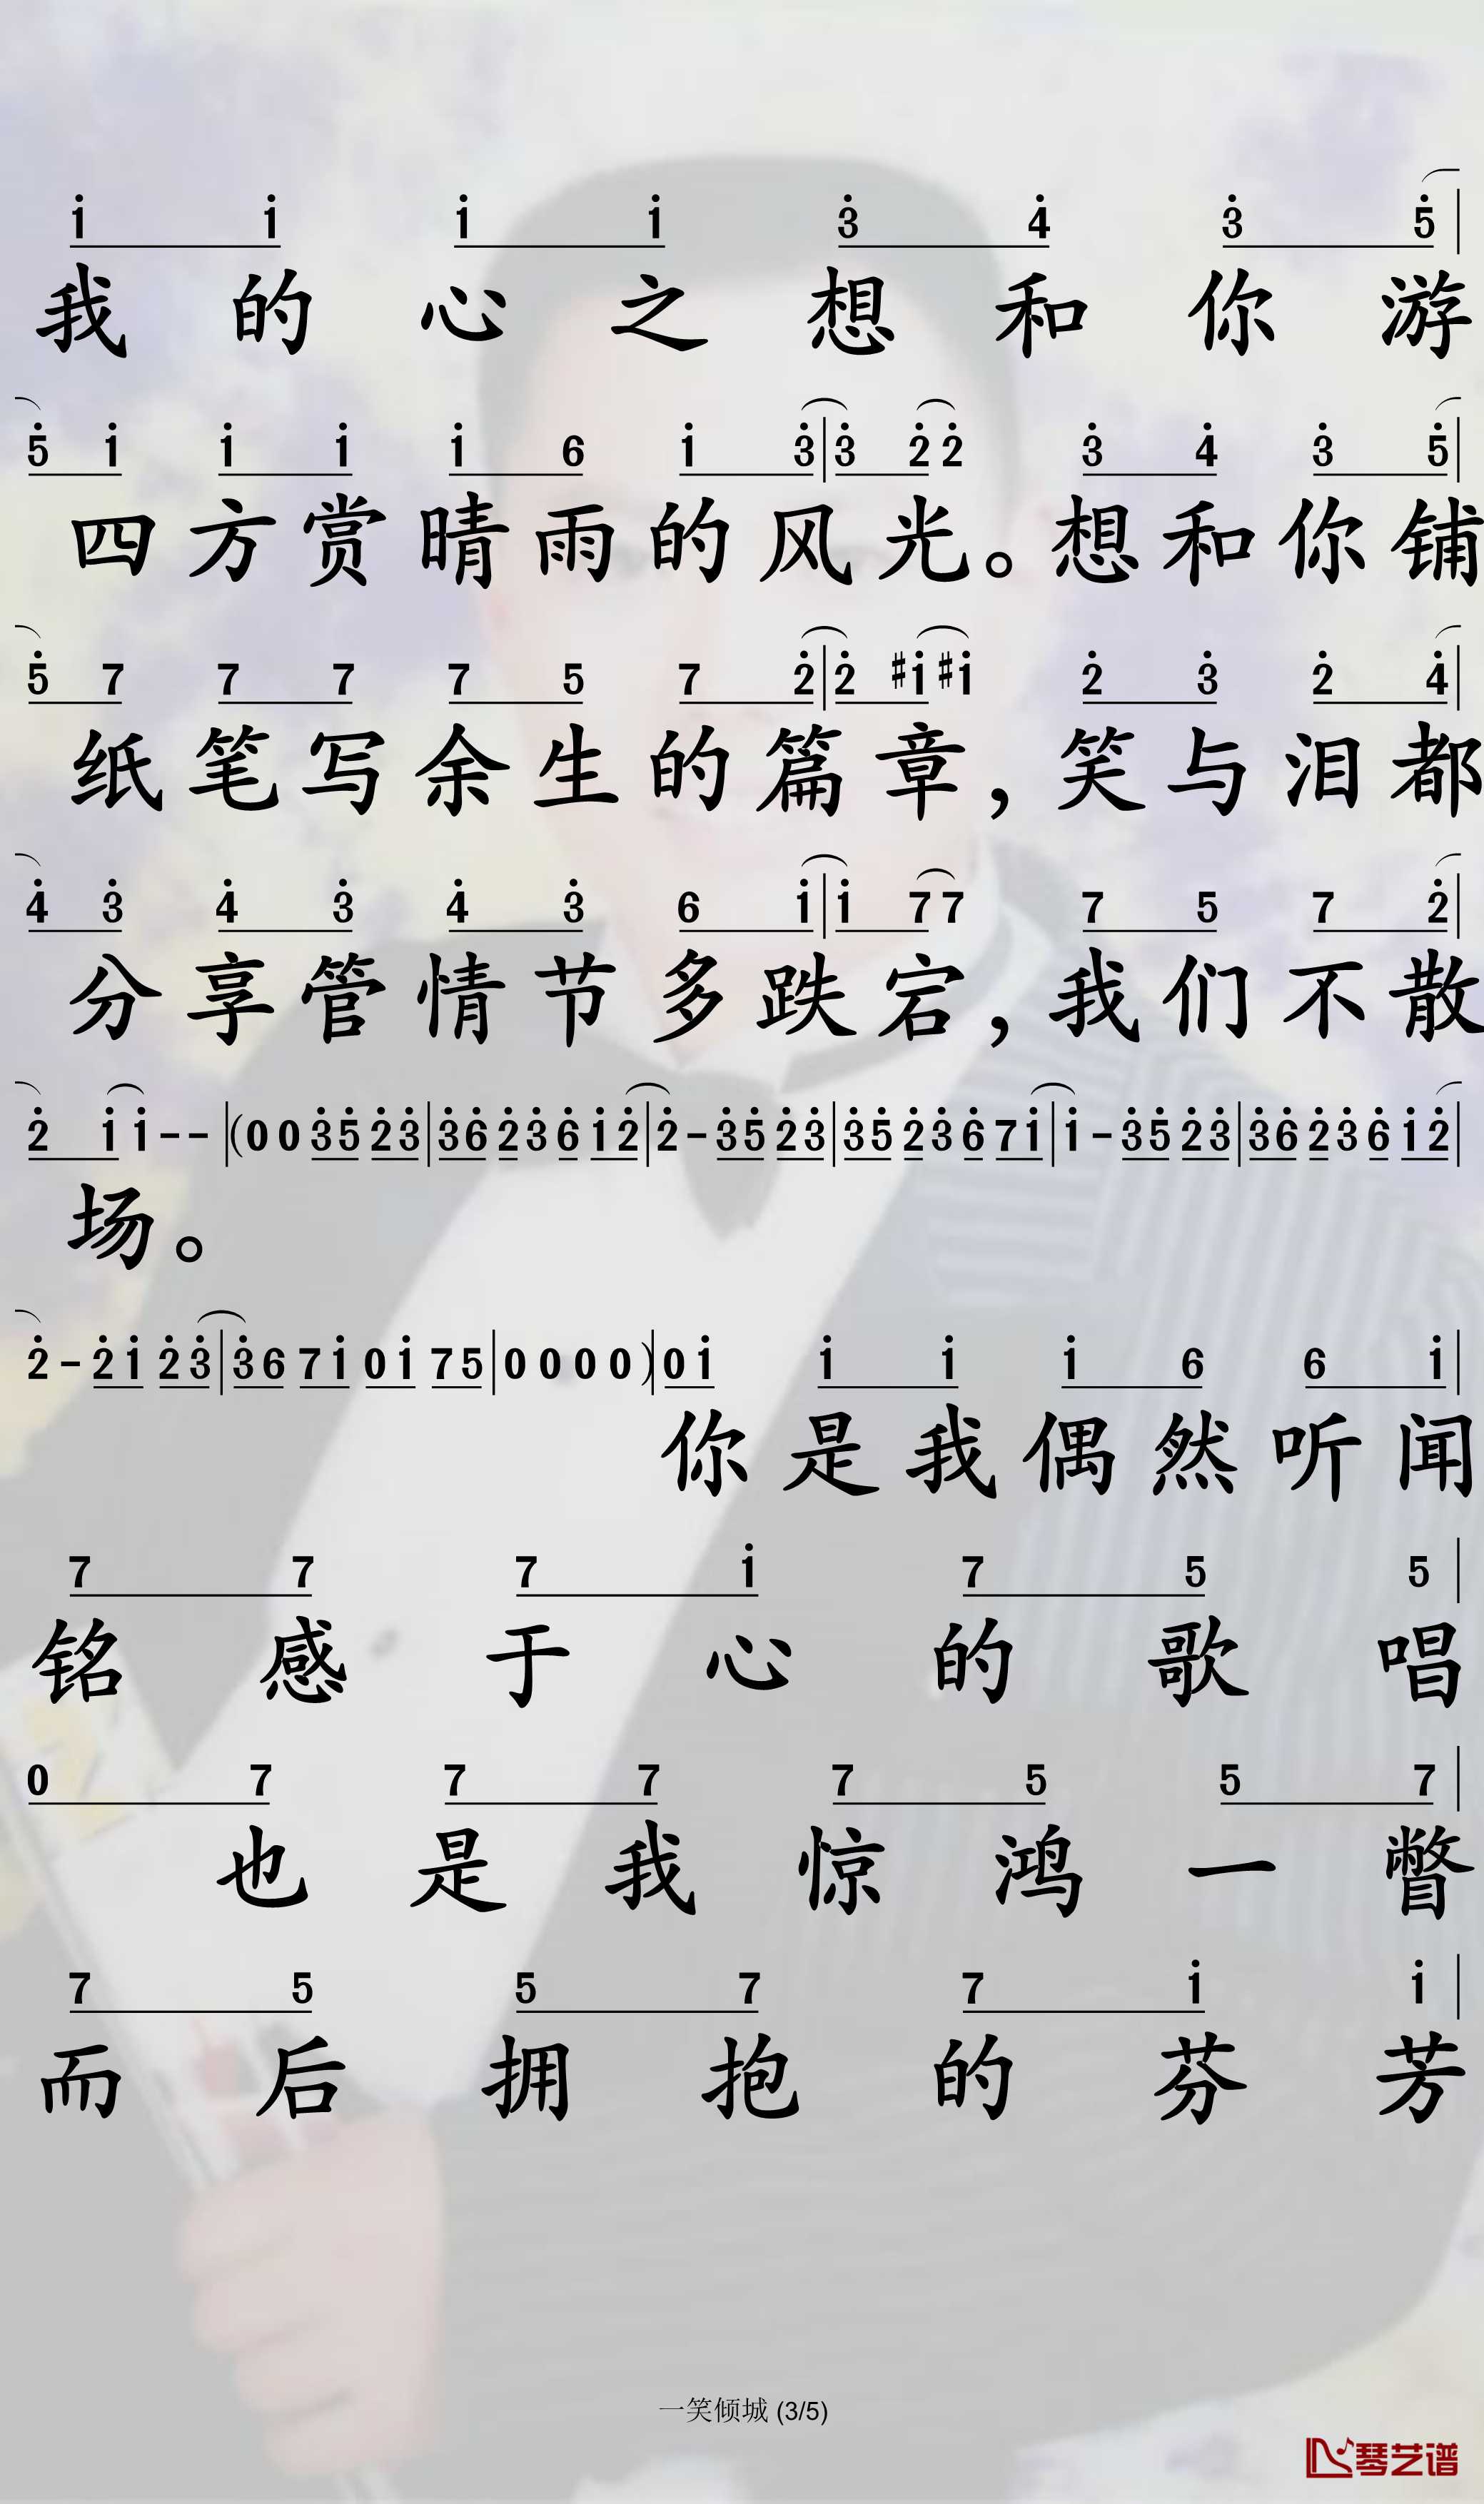 i i i i 3 4 3 5
我的心之想和你游
5 i i i i 6 i 3 | 3 2 2 3 4 3 5
四方赏晴雨的风光。想和你铺
5 7 7 7 7 5 7 2 | 2 #i #i 2 3 2 4
纸笔写余生的篇章,笑与泪都
4 3 4 3 4 3 6 i | i 7 7 7 5 7 2
分享管情节多跌宕,我们不散
2 i i - - | (0 0 3 5 2 3 | 3 6 2 3 6 i 2 | 2 - 3 5 2 3 | 3 5 2 3 6 7 i | i - 3 5 2 3 | 3 6 2 3 6 i 2
场。
2 - 2 i 2 3 | 3 6 7 i 0 i 7 5 | 0 0 0 0 ) | 0 i i i i 6 6 i
你是我偶然听闻
7 7 7 i 7 5 5
铭感于心的歌唱
0 7 7 7 7 5 5 7
也是我惊鸿一瞥
7 5 5 7 7 i i
而后拥抱的芬芳
一笑倾城 (3/5)
琴艺谱